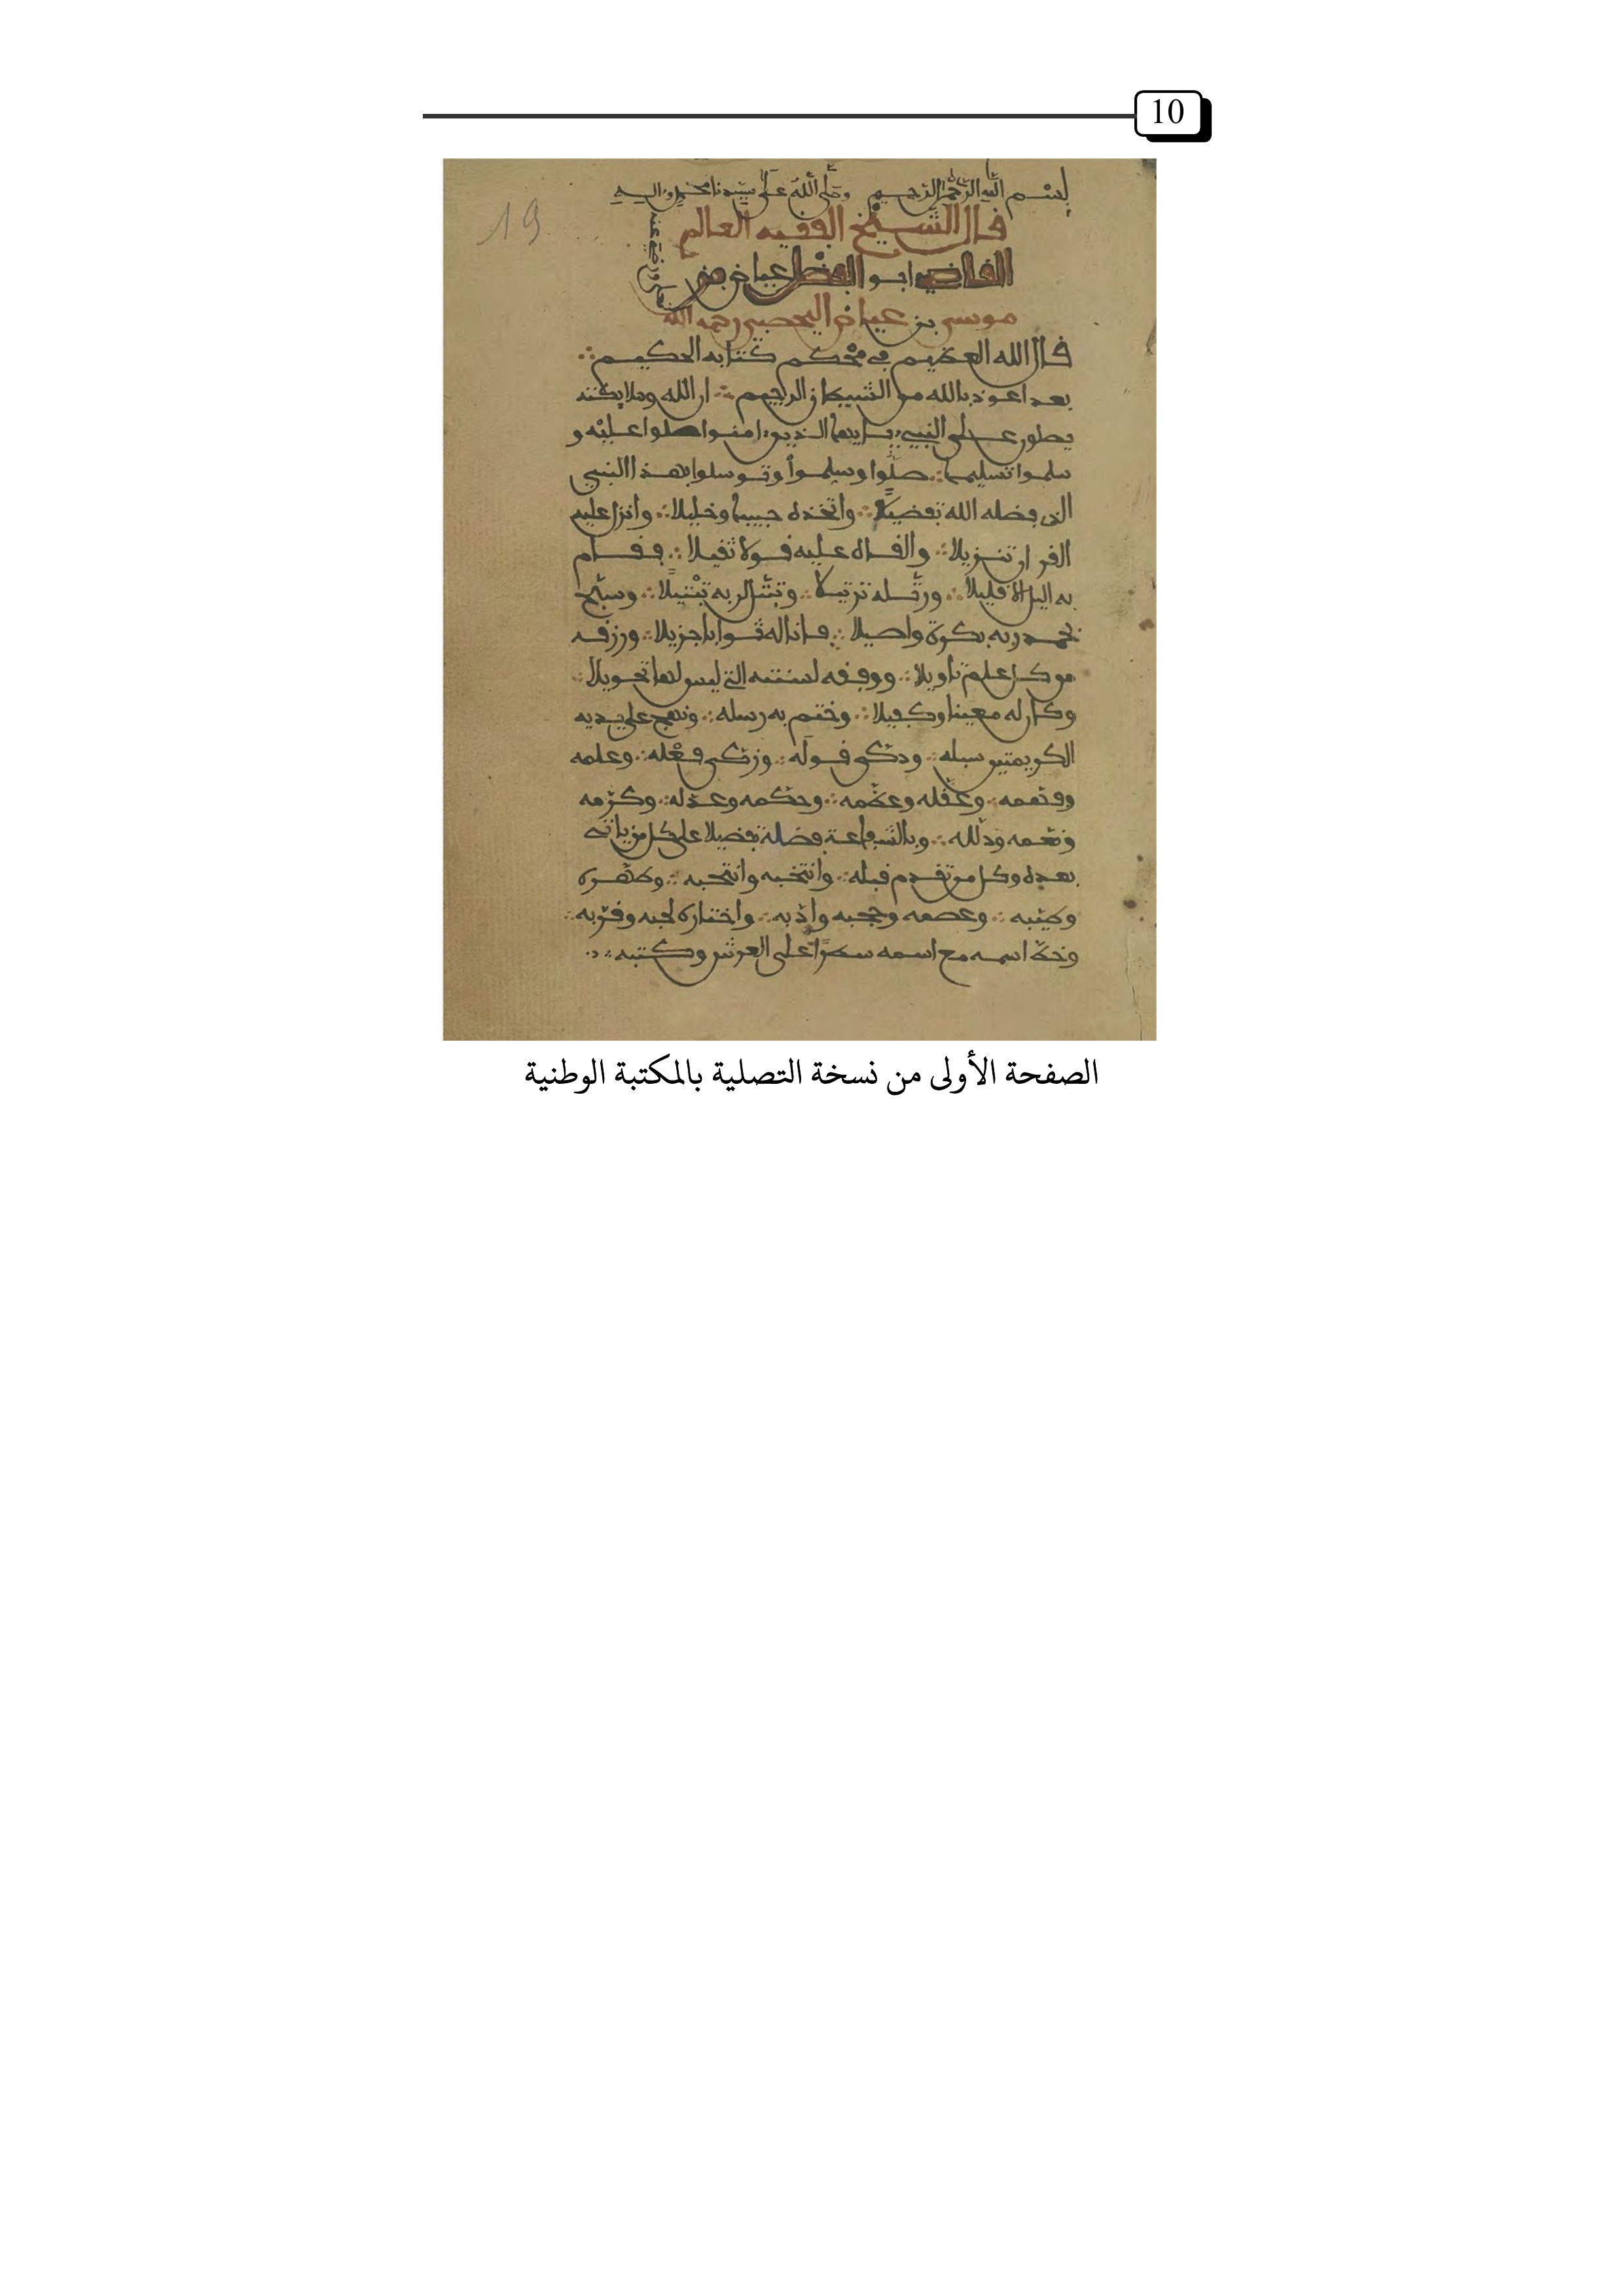 10
بسم الله الرحمن الرحيم وصلى الله على سيدنا محمد واله
19
قال الشيخ الفقيه العالم
القاضي ابو الفضل عياض بن
موسى بن عياض اليحصبي رحمه الله
ورضي عنه
قال الله العظيم في محكم كتابه الحكيم
بعد اعوذ بالله من الشيطان الرجيم ان الله وملايكته
يصلون على النبيء يايها الذين ءامنوا صلوا عليه و
سلموا تسليما صلوا وسلموا وتوسلوا بهذا النبي
الذي فضله الله تفضيلا واتخذه حبيبا وخليلا وانزل عليه
القران تنزيلا والقاه عليه قولا ثقيلا فقام
به اليل الا قليلا ورتله ترتيلا وتبتل لربه تبتيلا وسبح
بحمد ربه بكرة واصيلا فاناله ثوابا جزيلا ورزقه
من كل علم تاويلا ووفقه لسنته التي ليس لها تحويلا
وكان له معينا وكفيلا وختم به رسله ونهج على يديه
الكريمتين سبله وذكى قوله وزكى فعله وعلمه
وفهمه وعقله وعظمه وحكمه وعدله وكرمه
ونعمه ودلله وبالشفاعة فضله تفضيلا على كل من ياتي
بعده وكل من تقدم قبله وانتخبه وانتجبه وطهره
وطيبه وعصمه وحجبه وادبه واختاره لحبه وقربه
وخط اسمه مع اسمه سطرا على العرش وكتبه
الصفحة الأولى من نسخة التصلية بالمكتبة الوطنية